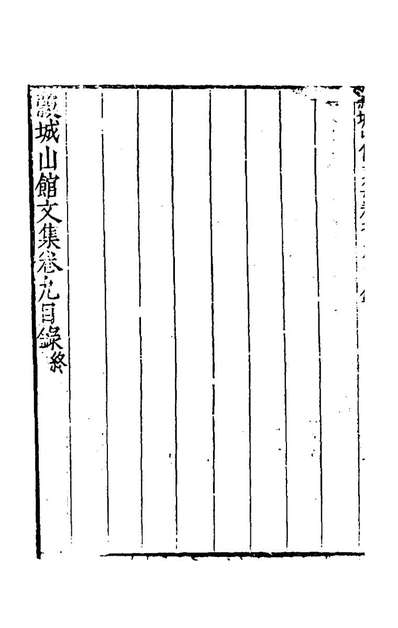 穀城山館文集卷九目錄終